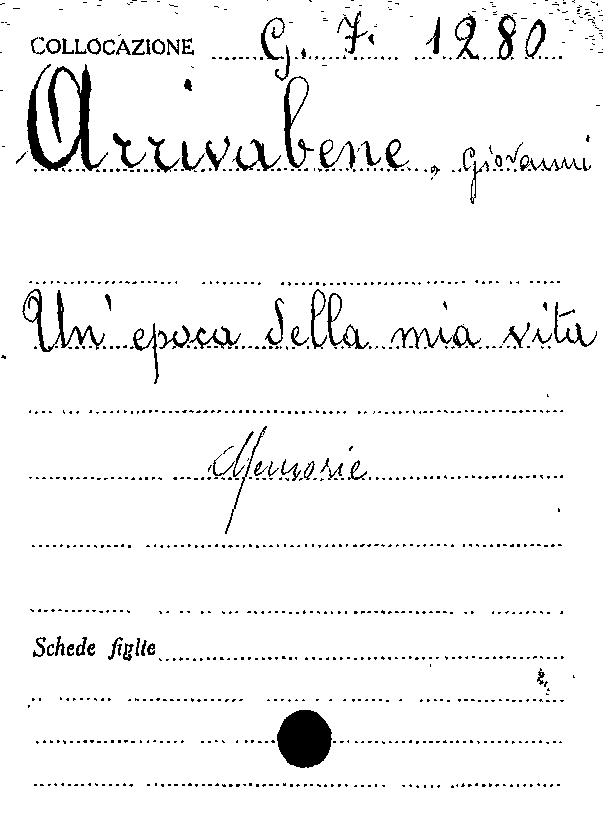 COLLOCAZIONE G. 7. 1280
Arrivabene, Giovanni
Un' epoca della mia vita
Memorie
Schede figlie